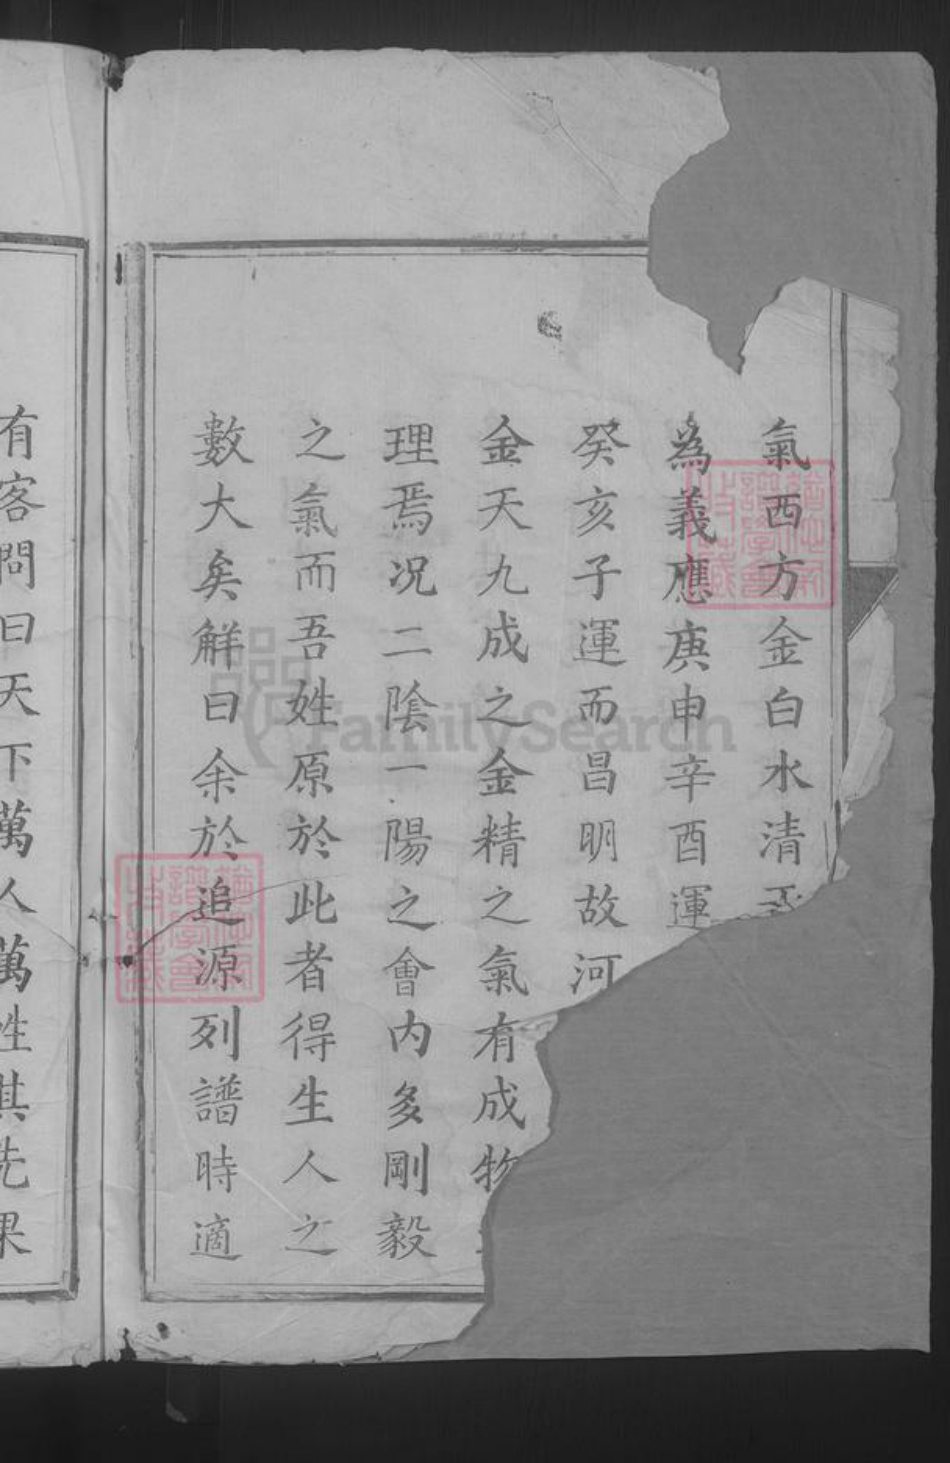 氣西方金白水清
為義應庚申辛酉運
癸亥子運而昌明故河
金天九成之金精之氣有成物
理焉况二陰一陽之會内多剛毅
之氣而吾姓原於此者得生人之
數大矣解曰余於追源列譜時適
有客問曰天下萬人萬姓其先果
FamilySearch